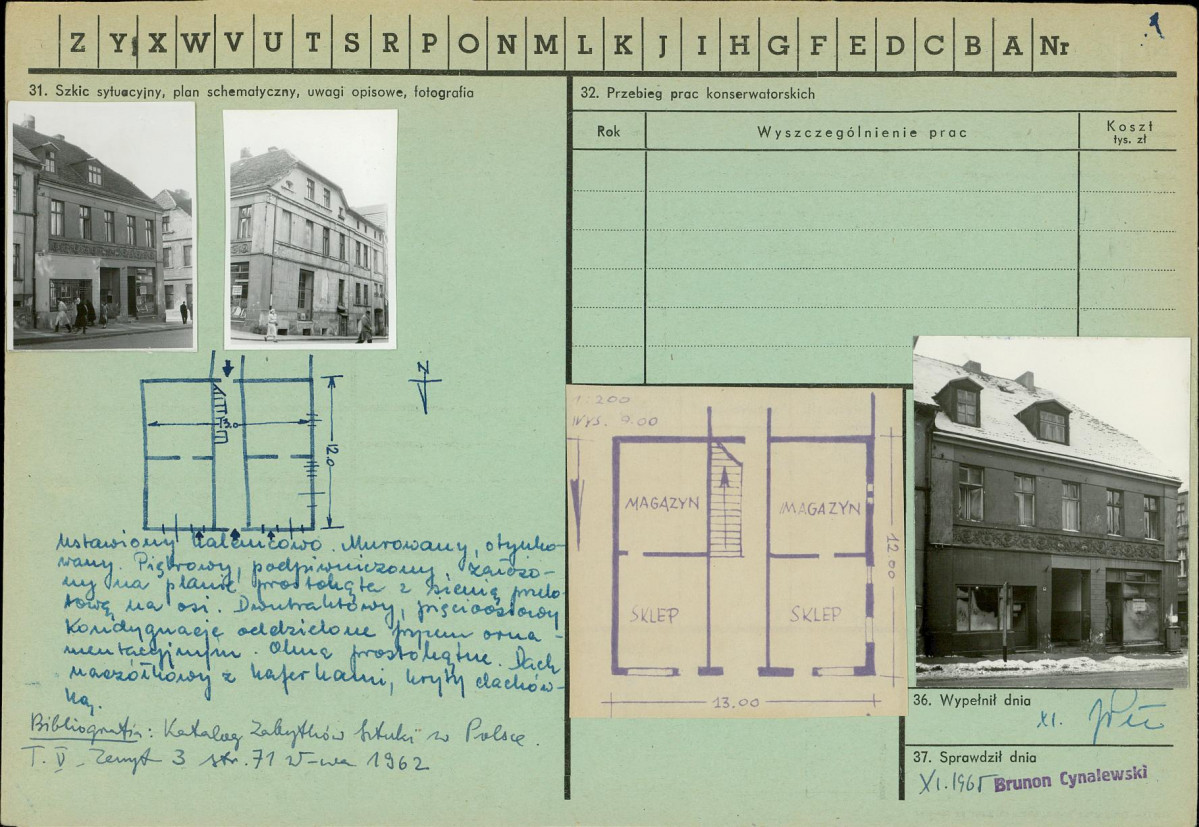 Z Y X W V U T S R P O N M L K J I H G F E D C B A Nr
1
31. Szkic sytuacyjny, plan schematyczny, uwagi opisowe, fotografia
N
13.0
12.0
ustawiony kalenicowo. Murowany, otynko-
wany. Piętrowy, podpiwniczony, założo-
ny na planie prostokąta z sienią przelo-
tową na osi. Dwutraktowy, pięcioosiowy
Kondygnacje oddzielone fryzem orna-
mentacyjnym. Okna prostokątne. Dach
naczółkowy z kaferkami, kryty dachów-
ką.
Bibliografia: Katalog Zabytków Sztuki w Polsce.
T. V - Zeszyt 3 str. 71 W-wa 1962
32. Przebieg prac konserwatorskich
Rok
Wyszczególnienie prac
Koszt
tys. zł
1:200
WYS. 9.00
MAGAZYN
MAGAZYN
SKLEP
SKLEP
12.00
13.00
36. Wypełnił dnia
XI.
37. Sprawdził dnia
XI.1965 Brunon Cynalewski